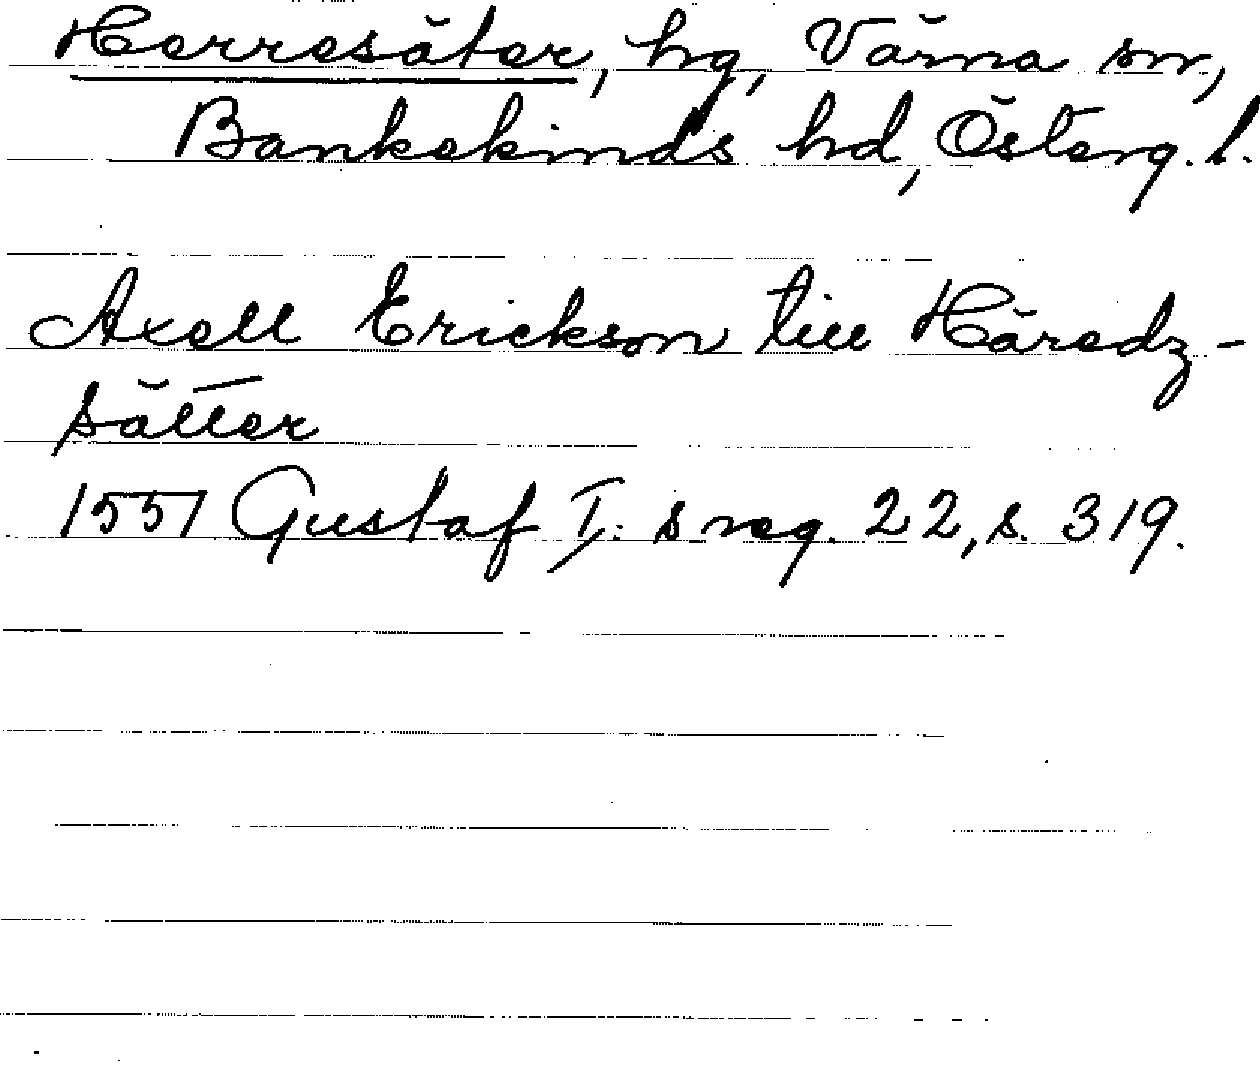 Herresäter, hg, Värna sn,
Bankekinds hd, Österg. l.
Axell Erickson till Häredz-
sätter
1557 Gustaf I: s reg. 22, s. 319.